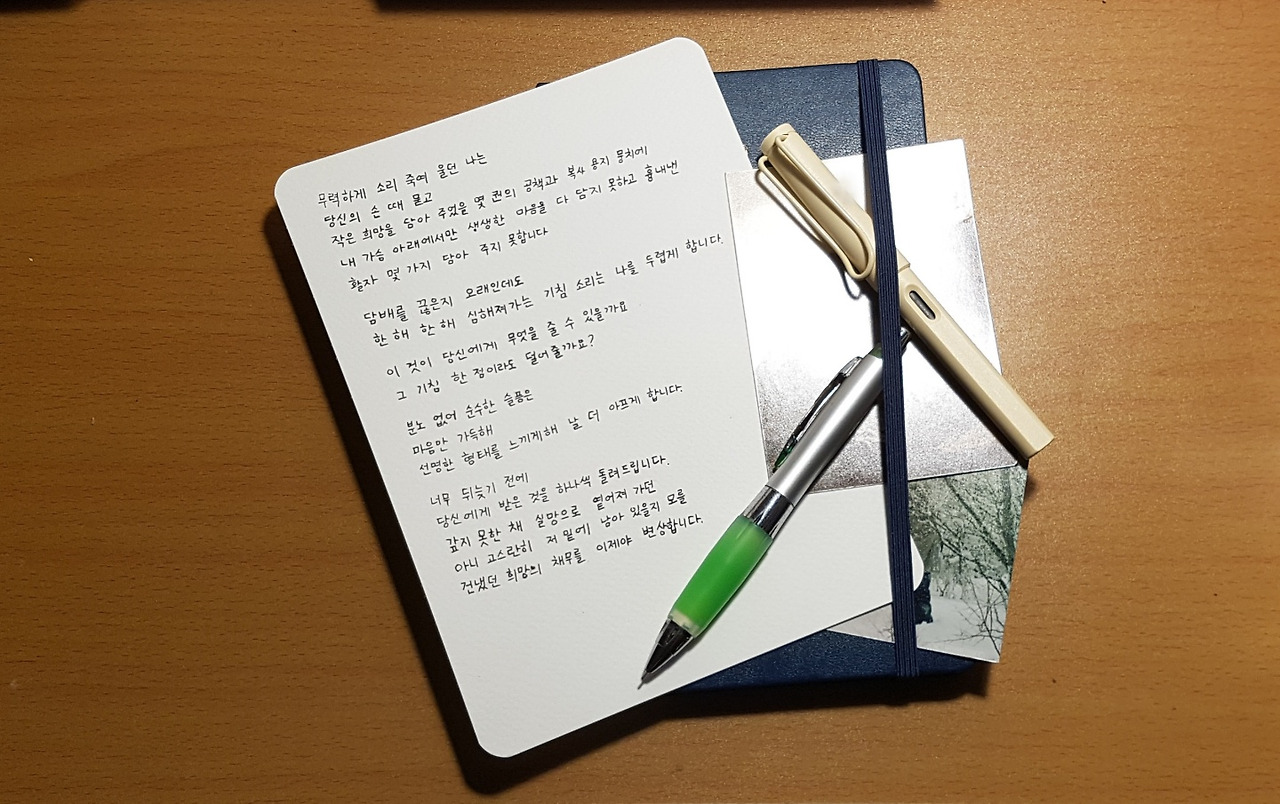 무력하게 소리 죽여 울던 나는
당신의 손 때 물고
작은 희망을 담아 주었을 몇 권의 공책과 복사 용지 뭉치에
내 가슴 아래에서만 생생한 마음을 다 담지 못하고 흉내낸
활자 몇 가지 담아 주지 못합니다
담배를 끊은지 오래인데도
한 해 한 해 심해져가는 기침 소리는 나를 두렵게 합니다.
이 것이 당신에게 무엇을 줄 수 있을까요
그 기침 한 점이라도 덜어줄까요?
분노 없어 순수한 슬픔은
마음만 가득해
선명한 형태를 느끼게해 날 더 아프게 합니다.
너무 뒤늦기 전에
당신에게 받은 것을 하나씩 돌려드립니다.
갚지 못한 채 실망으로 옅어져 가던
아니 고스란히 저 밑에 남아 있을지 모를
건냈던 희망의 채무를 이제야 변상합니다.